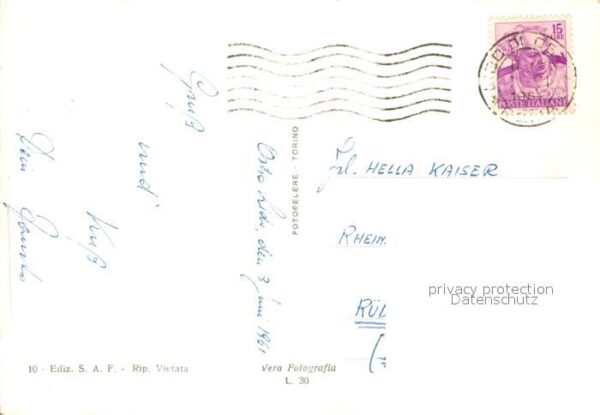 Gruß
und
Kuß
Dein
Ostia Lido, den 3. Juni 1961
FOTOCELERE - TORINO
15
LIRE
POSTE ITALIANE
LIDO DI
Frl. HELLA KAISER
RHEIN
RÜD
privacy protection
Datenschutz
10 - Ediz. S. A. F. - Rip. Vietata
Vera Fotografia
L. 30